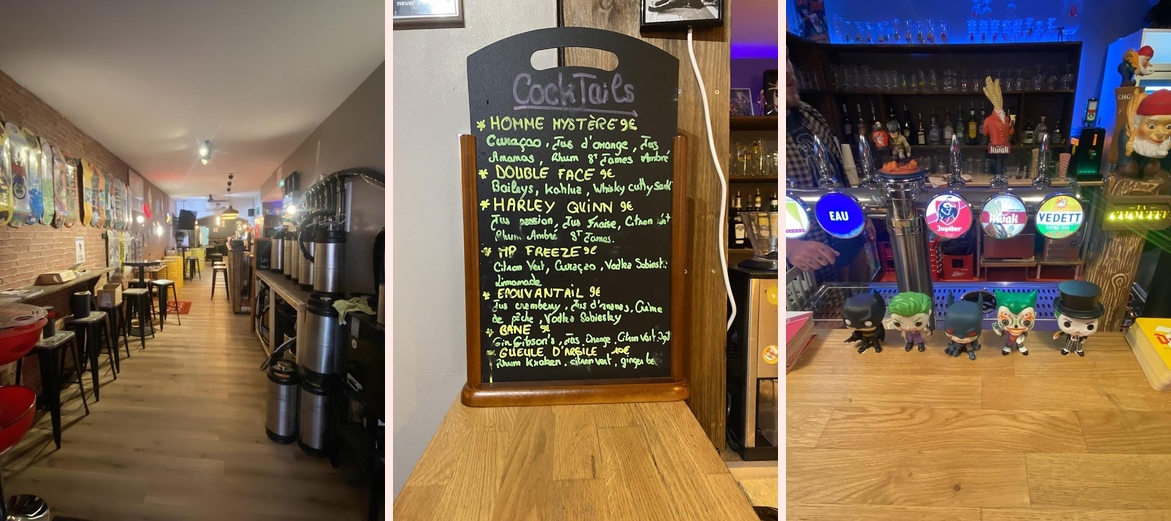 never
CockTails
* HOMME MYSTÈRE 9€
Curaçao, Jus d'orange, Jus
Ananas, Rhum St James Ambré
* DOUBLE FACE 9€
Baileys, Kahlua, Whisky cutty Sark
* HARLEY QUINN 9€
Jus passion, Jus Fraise, Citron Vert
Rhum Ambré St James.
* MR FREEZE 9€
Citron Vert, Curaçao, Vodka Sobieski
Limonade
* EPOUVANTAIL 9€
Jus cranberry, Jus d'ananas, Crème
de pêche, Vodka Sobiesky
* BANE 9€
Gin Gibson's, Jus Orange, Citron Vert
* GUEULE D'ARGILE 10€
Rhum Kraken, citron vert, ginger be
kwak
EAU
Jupiler
Kwak
VEDETT